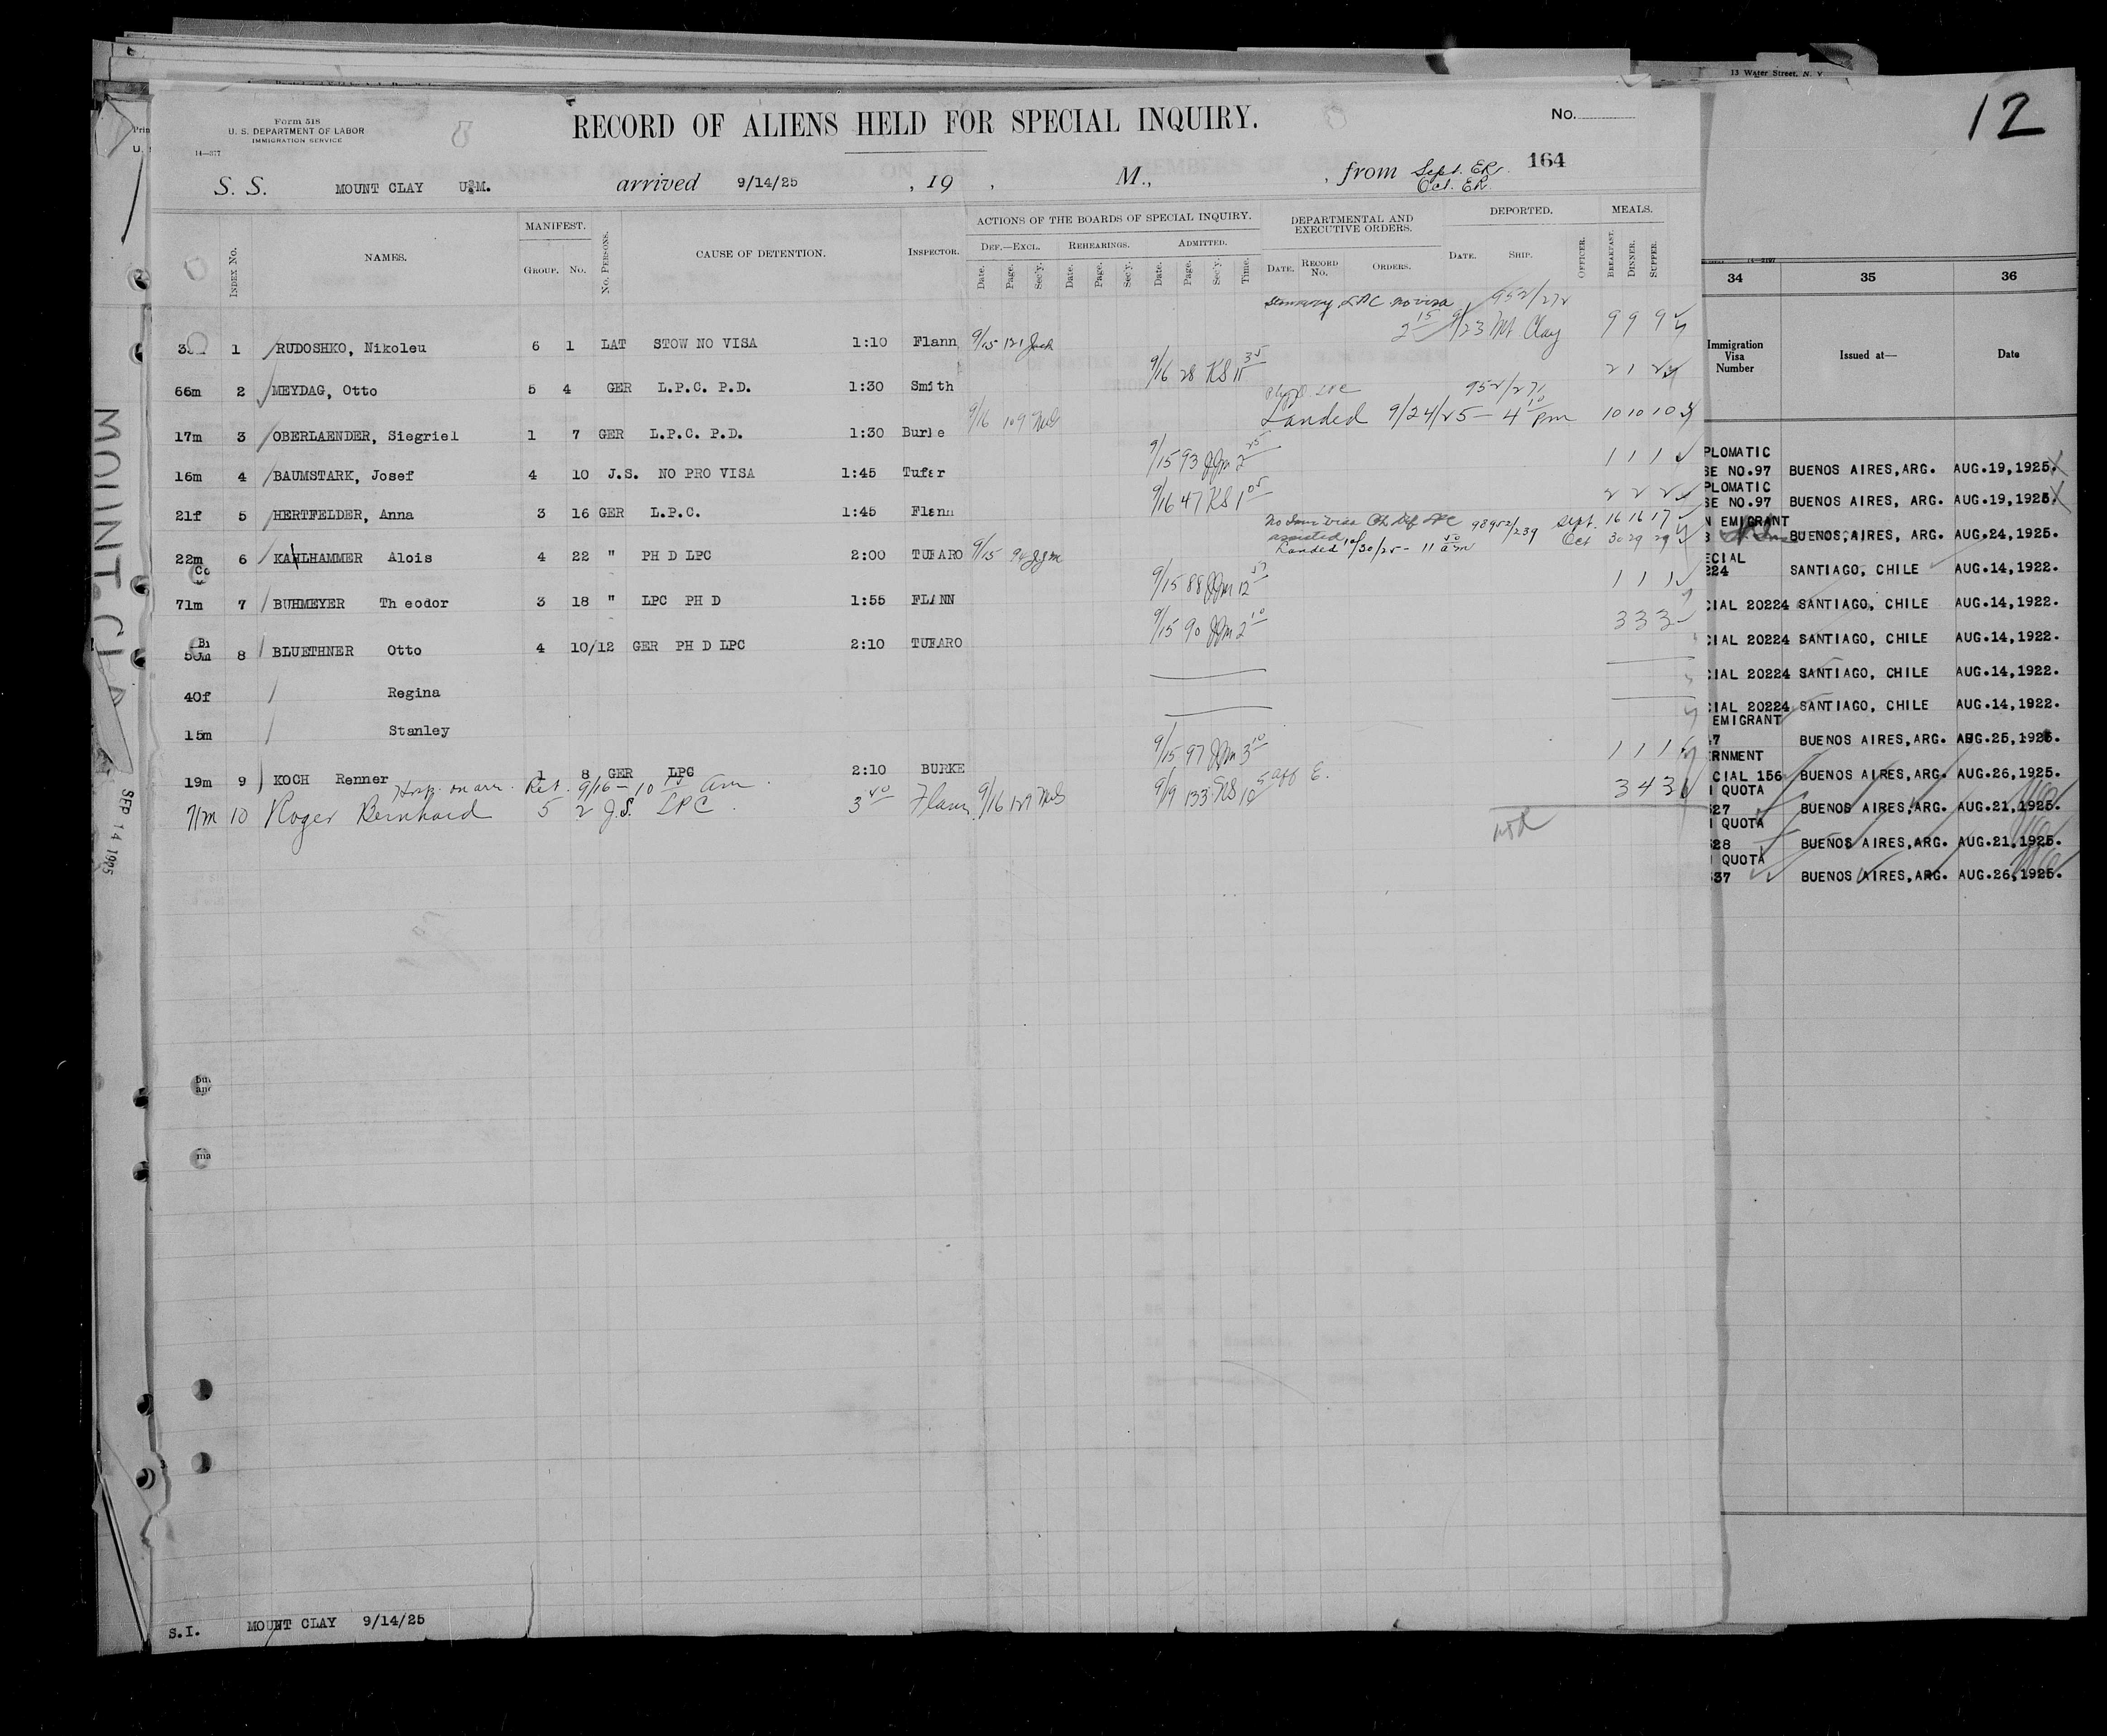 13 Water Street, N. Y
12
Form 518
U. S. DEPARTMENT OF LABOR
IMMIGRATION SERVICE
14—377
RECORD OF ALIENS HELD FOR SPECIAL INQUIRY.
No.
164
S. S. MOUNT CLAY arrived 9/14/25 , 19 , M., , from Sept. ER.
Oct. ER.
INDEX NO.
NAMES.
MANIFEST.
GROUP. NO.
NO. PERSONS.
CAUSE OF DETENTION.
INSPECTOR.
ACTIONS OF THE BOARDS OF SPECIAL INQUIRY.
DEF.—EXCL. REHEARINGS. ADMITTED.
Date. Page. Sec'y. Date. Page. Sec'y. Date. Page. Sec'y. Time.
DEPARTMENTAL AND
EXECUTIVE ORDERS.
DATE. RECORD No. ORDERS.
DEPORTED.
DATE. SHIP. OFFICER.
MEALS.
BREAKFAST. DINNER. SUPPER.
Stowaway LPC no visa 952/272
1 RUDOSHKO, Nikoleu 6 1 LAT STOW NO VISA 1:10 Flann 9/15 121 2 15 9/23 Mt Clay 9 9 9
66m 2 MEYDAG, Otto 5 4 GER L.P.C. P.D. 1:30 Smith 9/16 28 KS 11 35 2 1 2
952/271
17m 3 OBERLAENDER, Siegriel 1 7 GER L.P.C. P.D. 1:30 Burke 9/16 109 Landed 9/24/25 — 4 10 pm 10 10 10
16m 4 BAUMSTARK, Josef 4 10 J.S. NO PRO VISA 1:45 Tufar 9/15 93 JJM 2 25 1 1 1
21f 5 HERTFELDER, Anna 3 16 GER L.P.C. 1:45 Flann 9/16 47 KS 1 05 2 2 2
98952/239 Sept. 16 16 17
assisted Oct 30 29 29
22m 6 KAHLHAMMER Alois 4 22 " PH D LPC 2:00 TUFARO 9/15 94 JJM Landed 10/30/25 - 11 50 am
71m 7 BUHMEYER Theodor 3 18 " LPC PH D 1:55 FLANN 9/15 88 JJM 12 1 1 1
50m 8 BLUETHNER Otto 4 10/12 GER PH D LPC 2:10 TUFARO 9/15 90 JJM 2 10 3 3 3
40f Regina
15m Stanley
19m 9 KOCH Renner 1 8 GER LPC 2:10 BURKE 9/15 97 JJM 3 10 1 1 1
Hosp. on arr. Ret. 9/16 - 10 15 am.
71m 10 Roger Bernhard 5 2 J.S. LPC 3 40 Flann 9/16 127 9/19 133 KS 12 3 4 3
S.I. MOUNT CLAY 9/14/25
MOUNT CLA
SEP 14 1925
34 35 36
Immigration
Visa
Number
Issued at—
Date
PLOMATIC
SE NO.97 BUENOS AIRES,ARG. AUG.19,1925.
PLOMATIC
SE NO.97 BUENOS AIRES, ARG. AUG.19,1925.
N EMIGRANT
BUENOS,AIRES, ARG. AUG.24,1925.
ECIAL
224 SANTIAGO, CHILE AUG.14,1922.
CIAL 20224 SANTIAGO, CHILE AUG.14,1922.
CIAL 20224 SANTIAGO, CHILE AUG.14,1922.
CIAL 20224 SANTIAGO, CHILE AUG.14,1922.
CIAL 20224 SANTIAGO, CHILE AUG.14,1922.
EMIGRANT
47 BUENOS AIRES,ARG. AUG.25,1925.
ERNMENT
CIAL 156 BUENOS AIRES,ARG. AUG.26,1925.
QUOTA
527 BUENOS AIRES,ARG. AUG.21,1925.
QUOTA
528 BUENOS AIRES,ARG. AUG.21,1925.
QUOTA
537 BUENOS AIRES,ARG. AUG.26,1925.